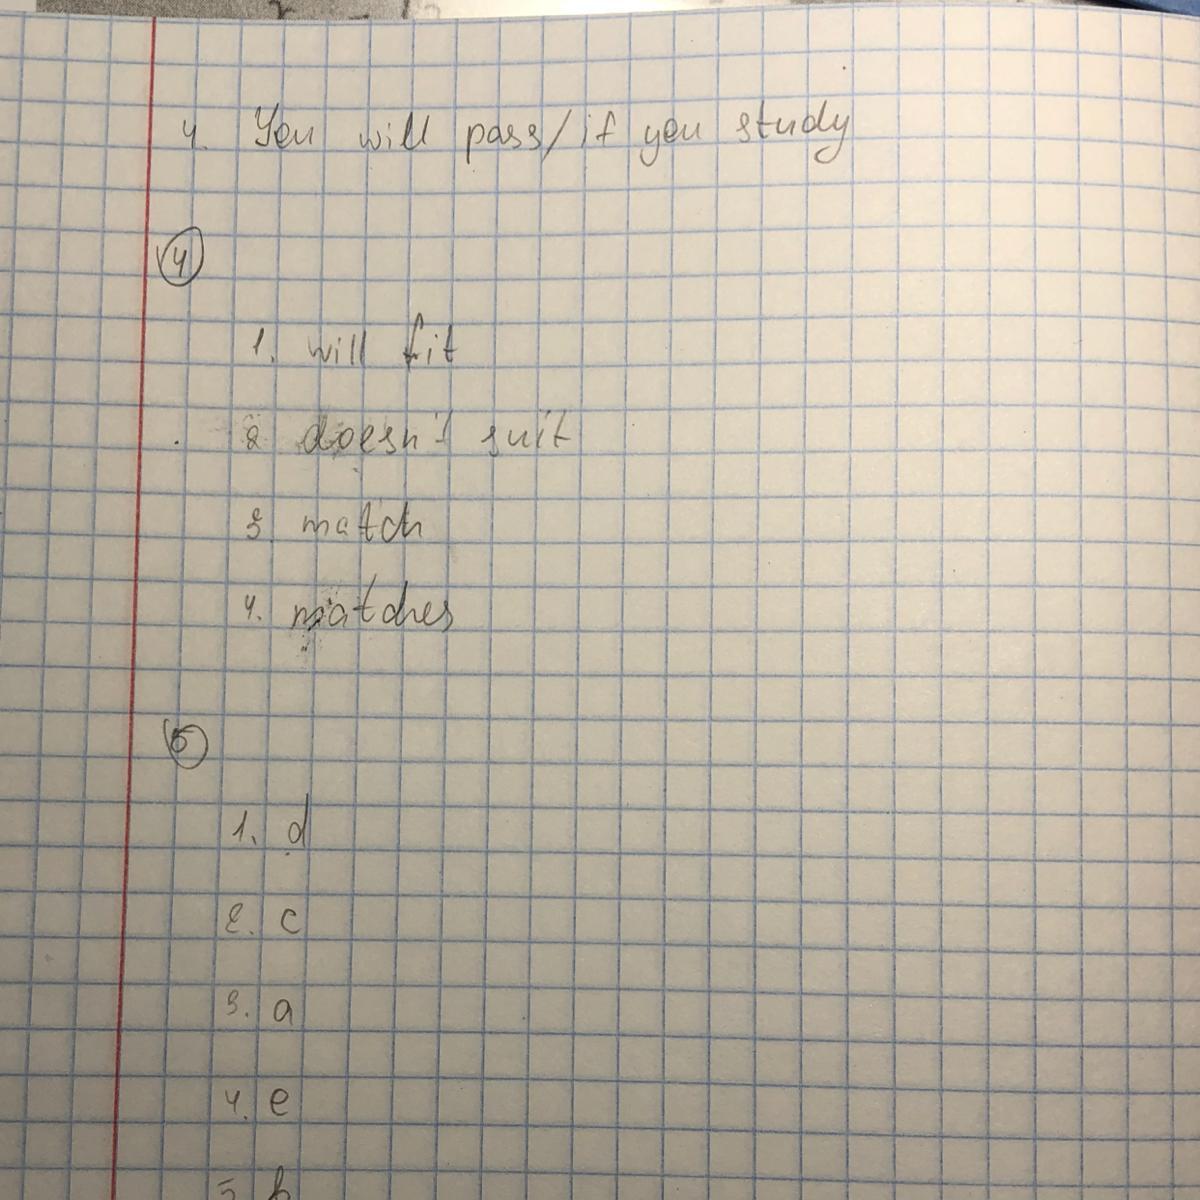 4. You will pass/if you study
4
1. will fit
2 doesn't suit
3. match
4. matches
5
1. d
2. c
3. a
4. e
5 b